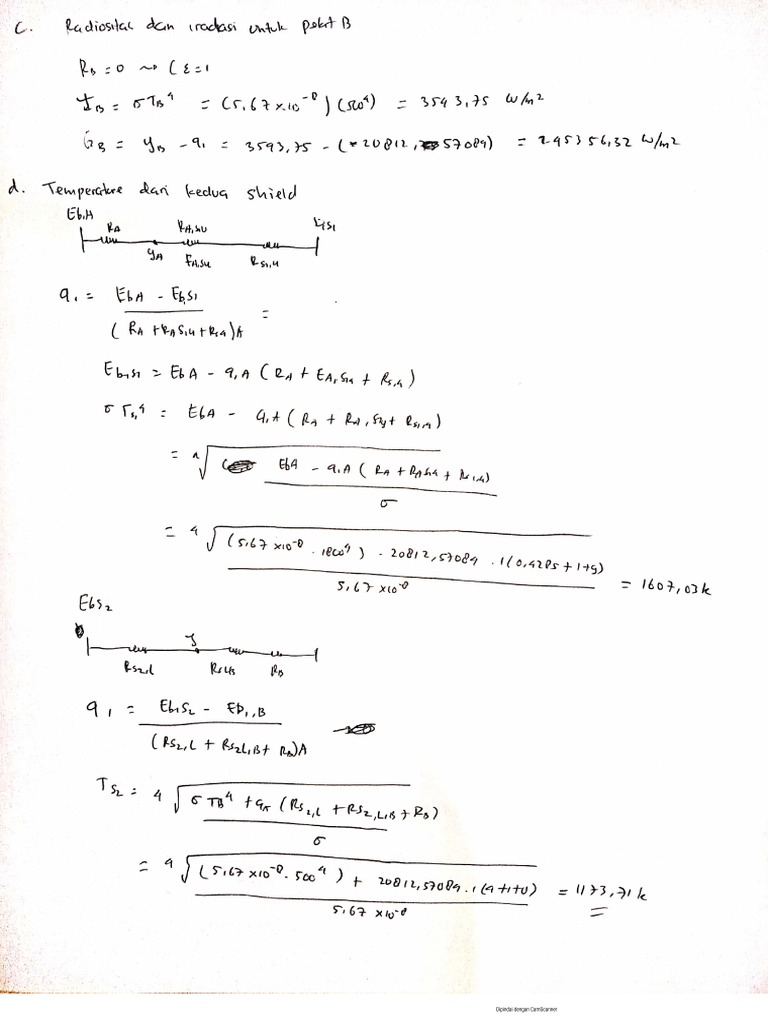 C. Radiositas dan iradiasi untuk pelat B
R_B = 0 ~> (ε=1
J_B = σT_B⁴ = (5,67 x 10⁻⁸)(500⁴) = 3543,75 W/m²
G_B = y_B - q₁ = 3593,75 - (-20812,57089) = 245356,32 W/m²
d. Temperature dari kedua shield
Eb,A
R_A R_A,S1U EbS1
y_A F_A,S1U R_S1,U
q₁ = EbA - Eb,S1 / (R_A + R_A S1,U + R_S1,U)A =
Eb,S1 = EbA - q₁A (R_A + E_A,S1U + R_S1,U)
σ T_S1⁴ = EbA - q₁A (R_A + R_A,S1U + R_S1,U)
= ⁴√( EbA - q₁A (R_A + R_A S1,U + R_S1,U) / σ
= ⁴√(5,67 x 10⁻⁸ . 1800⁴) - 20812,57089 . 1(0,4285 + 1 + 9) / 5,67 x 10⁻⁸ = 1607,03 k
EbS₂
J
R_S2,L R_S2L,B R_B
q₁ = Eb,S₂ - Eb,B / (R_S2,L + R_S2L,B + R_B)A
T_S2 = ⁴√σ T_B⁴ + q₁ (R_S2,L + R_S2,L,B + R_B) / σ
= ⁴√(5,67 x 10⁻⁸ . 500⁴) + 20812,57089 . 1 (9+1+0) / 5,67 x 10⁻⁸ = 1173,71 k
Dipindai dengan CamScanner